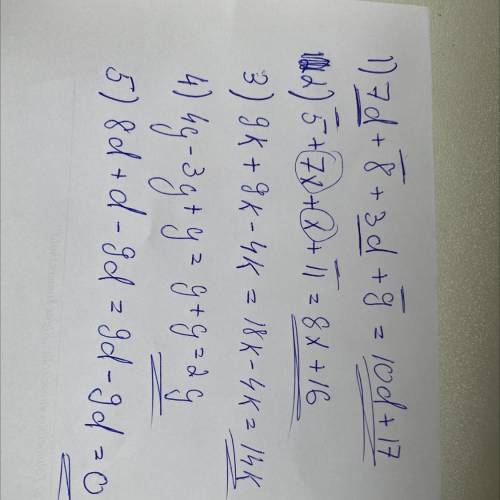 1) 7d + 8 + 3d + 9 = 10d + 17
2) 5 + 7x + x + 11 = 8x + 16
3) 9k + 9k - 4k = 18k - 4k = 14k
4) 4y - 3y + y = y + y = 2y
5) 8d + d - 9d = 9d - 9d = 0